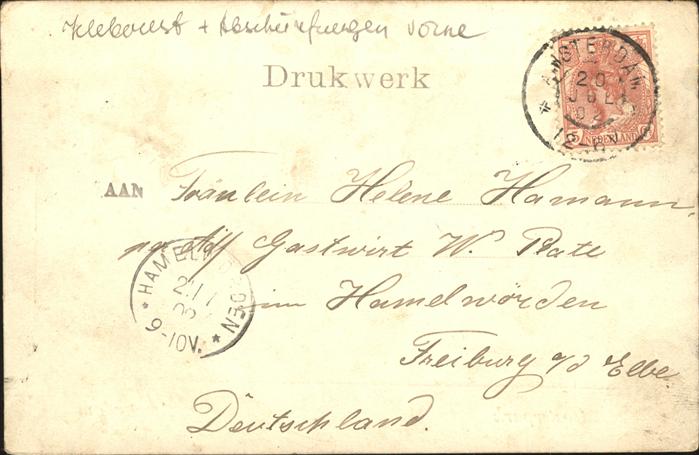 Kleberest + Abschürfungen vorne
Drukwerk
AMSTERDAM
20
JUL
02
NEDERLAND
AAN Fräulein Helene Hamann,
Gastwirt W. Plate
HAMELWÖRDEN
9-10V.
im Hamelwörden
Freiburg a/d Elbe
Deutschland.